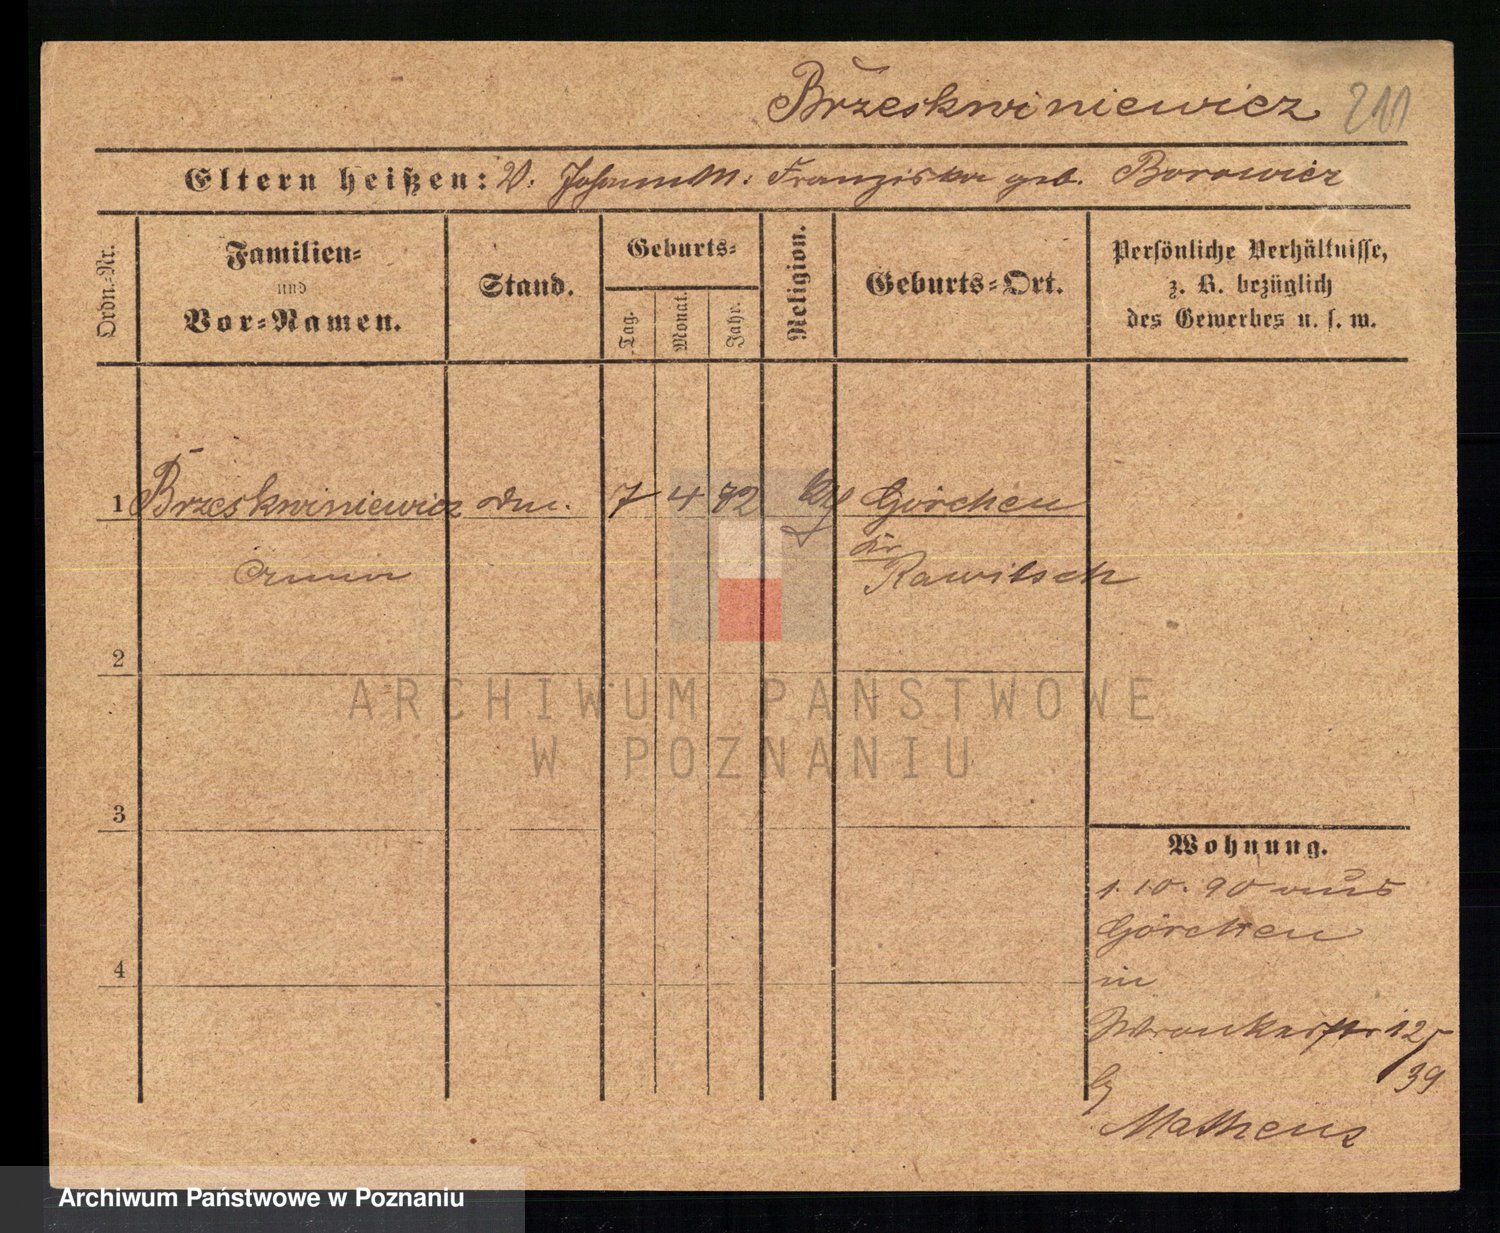 Brzeskwiniewicz 211
Eltern heißen: V. Johann M: Franziska geb. Borowicz
Ordn.-Nr.
Familien-
und
Vor-Namen.
Stand.
Geburts-
Tag.
Monat.
Jahr.
Religion.
Geburts-Ort.
Persönliche Verhältnisse,
z. B. bezüglich
des Gewerbes u. s. w.
1 Brzeskwiniewicz 7 4 72 Görchen
Kr.
Rawitsch
2
3
4
Wohnung.
1. 10. 90 aus
Görchen
in
Wronkerstr 12
39
Matheus
ARCHIWUM PAŃSTWOWE
W POZNANIU
Archiwum Państwowe w Poznaniu